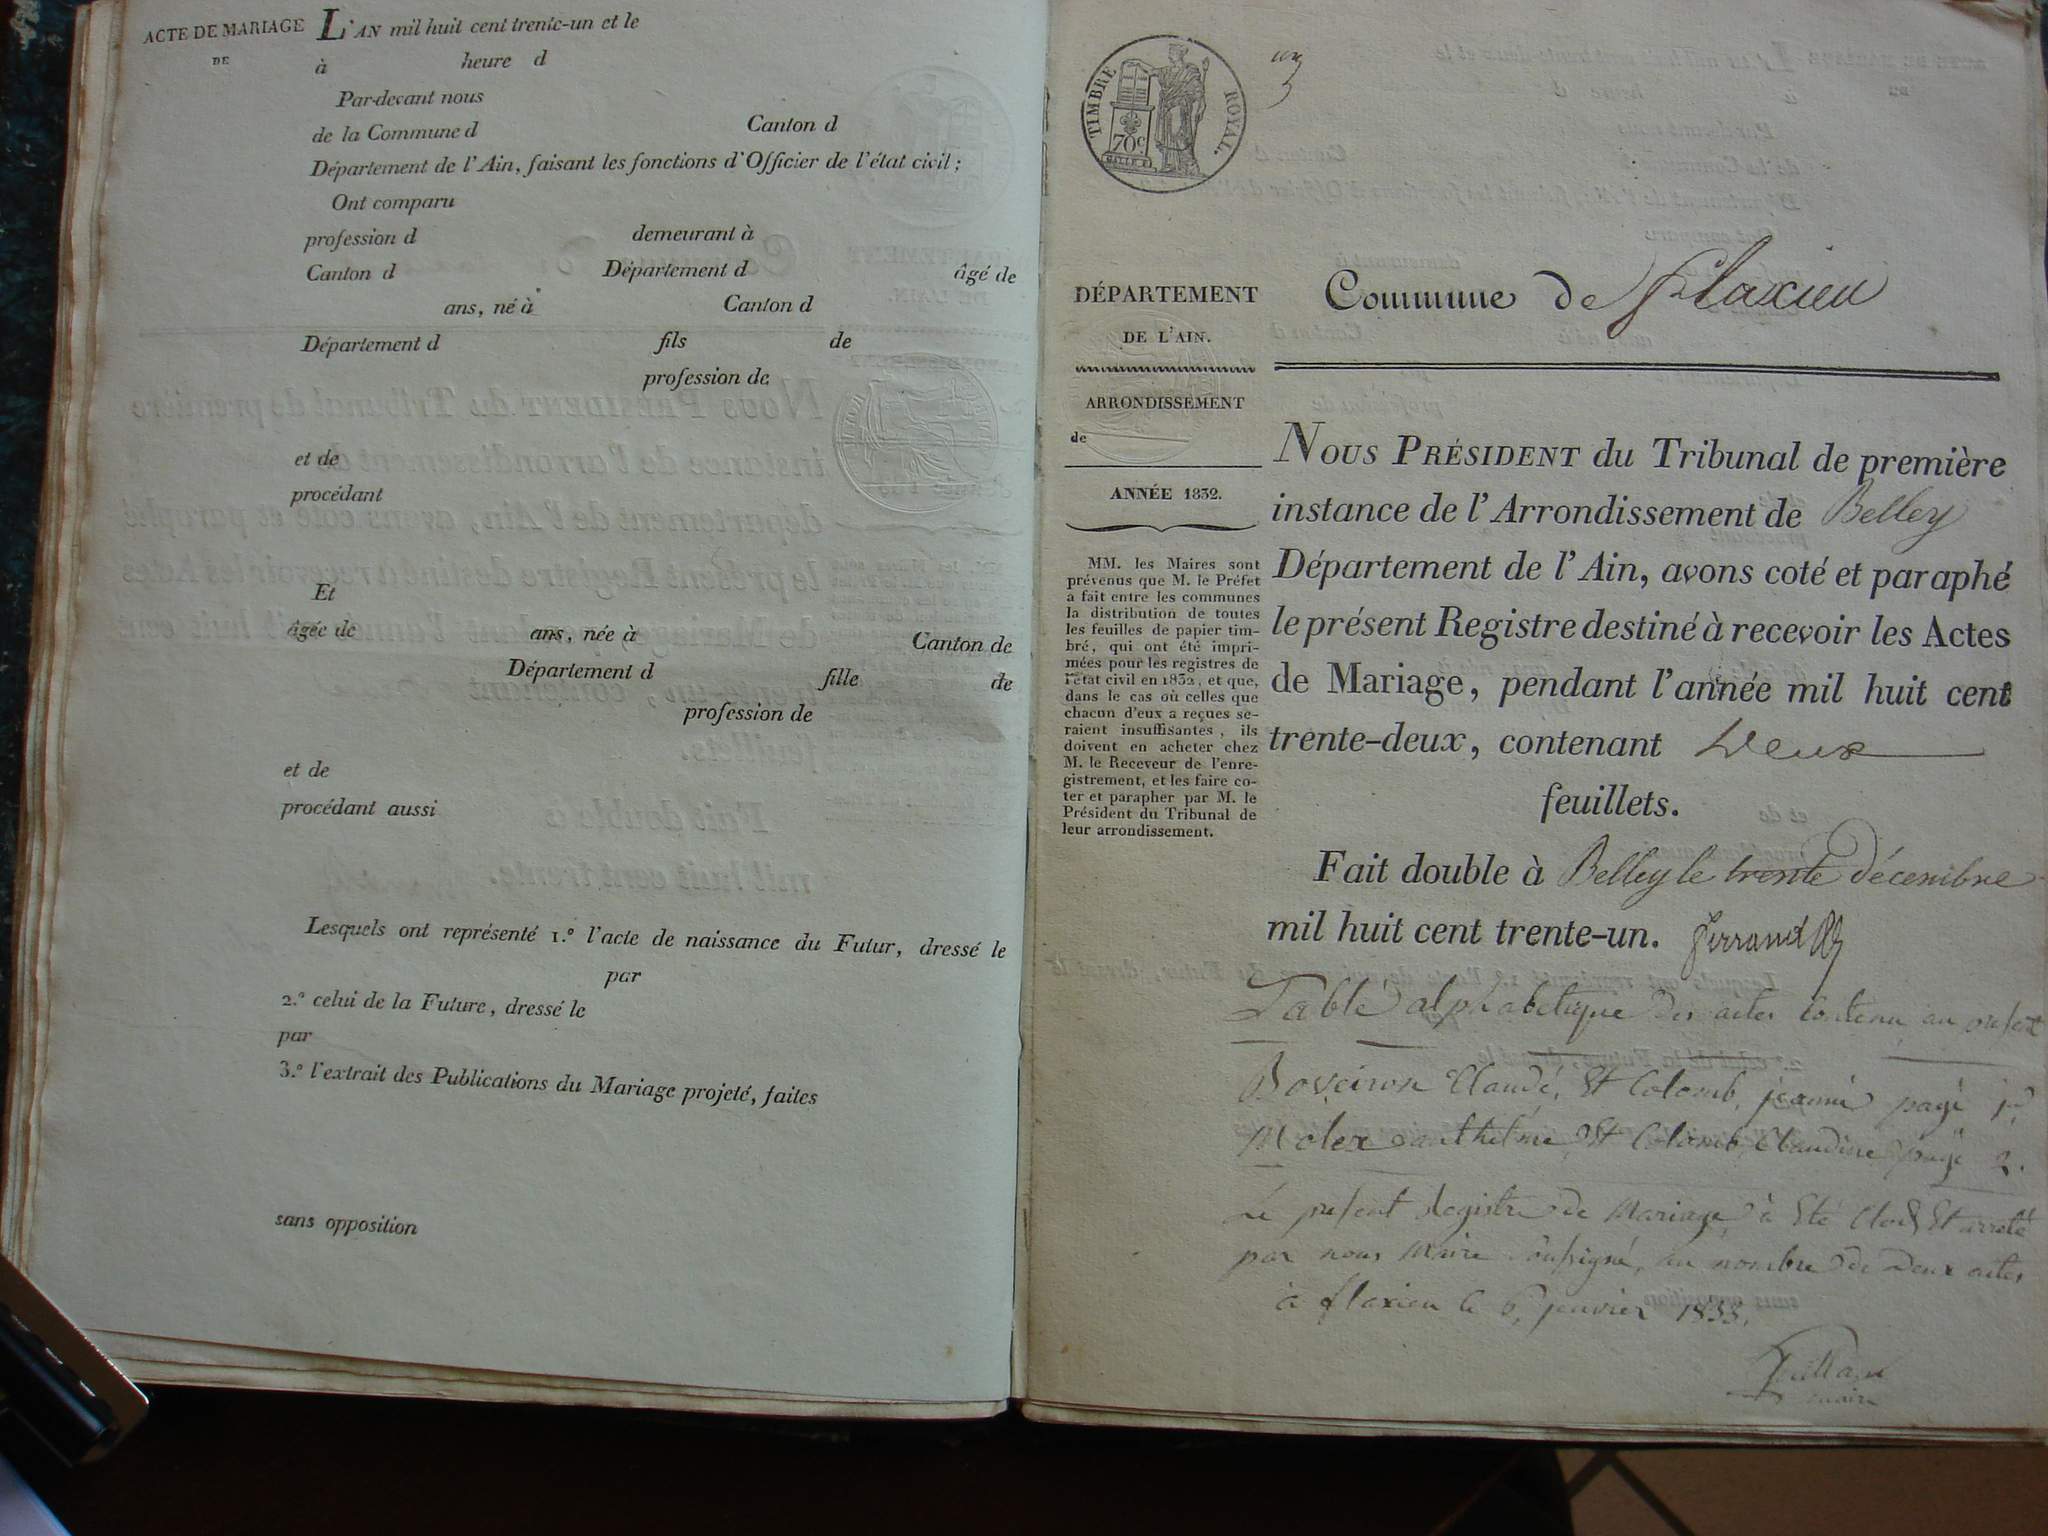 ACTE DE MARIAGE
DE
L'AN mil huit cent trente-un et le
à heure d
Par-devant nous
de la Commune d Canton d
Département de l'Ain, faisant les fonctions d'Officier de l'état civil;
Ont comparu
profession d demeurant à
Canton d Département d âgé de
ans, né à Canton d
Département d fils de
profession de
et de
procédant
Et
âgée de ans, née à Canton de
Département d fille de
profession de
et de
procédant aussi
Lesquels ont représenté 1.° l'acte de naissance du Futur, dressé le
par
2.° celui de la Future, dressé le
par
3.° l'extrait des Publications du Mariage projeté, faites
sans opposition
TIMBRE ROYAL.
70c
un
DÉPARTEMENT
DE L'AIN.
ARRONDISSEMENT
de
ANNÉE 1832.
MM. les Maires sont
prévenus que M. le Préfet
a fait entre les communes
la distribution de toutes
les feuilles de papier tim-
bré, qui ont été impri-
mées pour les registres de
l'état civil en 1832, et que,
dans le cas où celles que
chacun d'eux a reçues se-
raient insuffisantes, ils
doivent en acheter chez
M. le Receveur de l'enre-
gistrement, et les faire co-
ter et parapher par M. le
Président du Tribunal de
leur arrondissement.
Commune de flaxieu
NOUS PRÉSIDENT du Tribunal de première
instance de l'Arrondissement de Belley
Département de l'Ain, avons coté et paraphé
le présent Registre destiné à recevoir les Actes
de Mariage, pendant l'année mil huit cent
trente-deux, contenant Deux
feuillets.
Fait double à Belley le trente décembre
mil huit cent trente-un. ferrand
Table alphabetique des actes Contenu au present
Boveiron Claude, Et Colomb, jeanne page 1er
Molex anthelme Et Colomb, Claudine page 2.
Le present Registre de Mariage à Eté Clos Et arreté
par nous Maire Soussigné, au nombre de Deux actes
à flaxieu le 6 janvier 1833.
maire